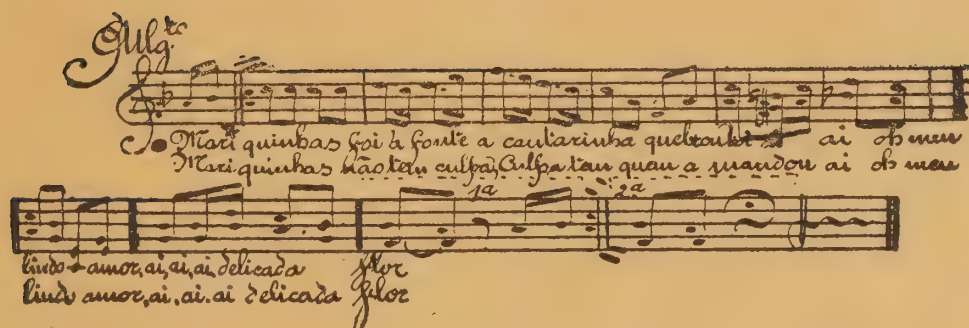 All.tto
Mariquinhas foi à fonte a cantarinha quebrou ai oh meu
Mariquinhas não tem culpa, Culpa tem quem a mandou ai oh meu
1ª 2ª
lindo amor, ai, ai, ai, delicada flor
lindo amor, ai, ai, ai delicada flor